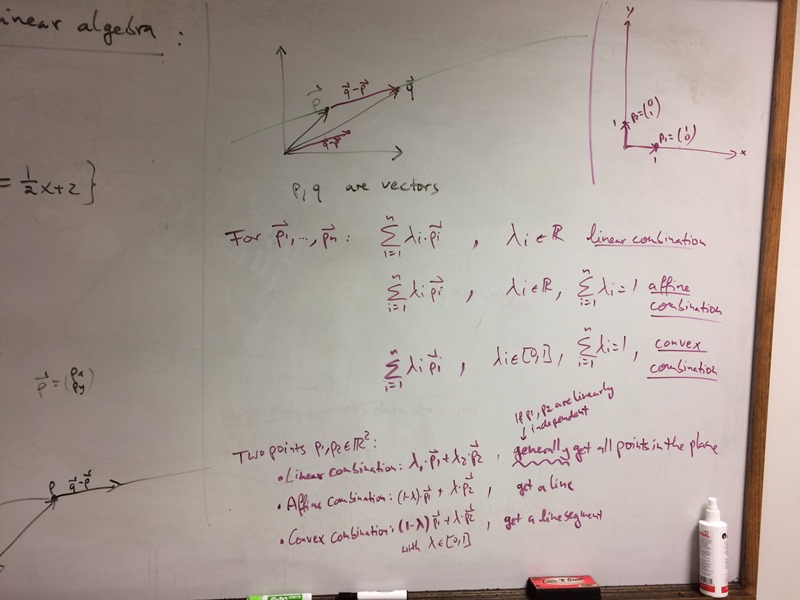 linear algebra :
= 1/2 x+2 }
p⃗ = (px py)
p
q⃗-p⃗
p⃗
q⃗-p⃗
q⃗
q-p
p, q are vectors
y
1
p2=(0 1)
p1=(1 0)
1
x
For p⃗1, ..., p⃗n : n ∑ i=1 λi·p⃗i , λi ∈ ℝ linear combination
n ∑ i=1 λi p⃗i , λi ∈ ℝ, n ∑ i=1 λi=1 affine combination
n ∑ i=1 λi p⃗i , λi ∈ [0,1], n ∑ i=1 λi=1, convex combination
if p1, p2 are linearly
independent
Two points p1, p2 ∈ ℝ²:
• Linear combination: λ1·p⃗1 + λ2·p⃗2 , generally get all points in the plane
• Affine combination: (1-λ)·p⃗1 + λ·p⃗2 , get a line
• Convex combination: (1-λ) p⃗1 + λ·p⃗2 , get a line segment
with λ ∈ [0,1]